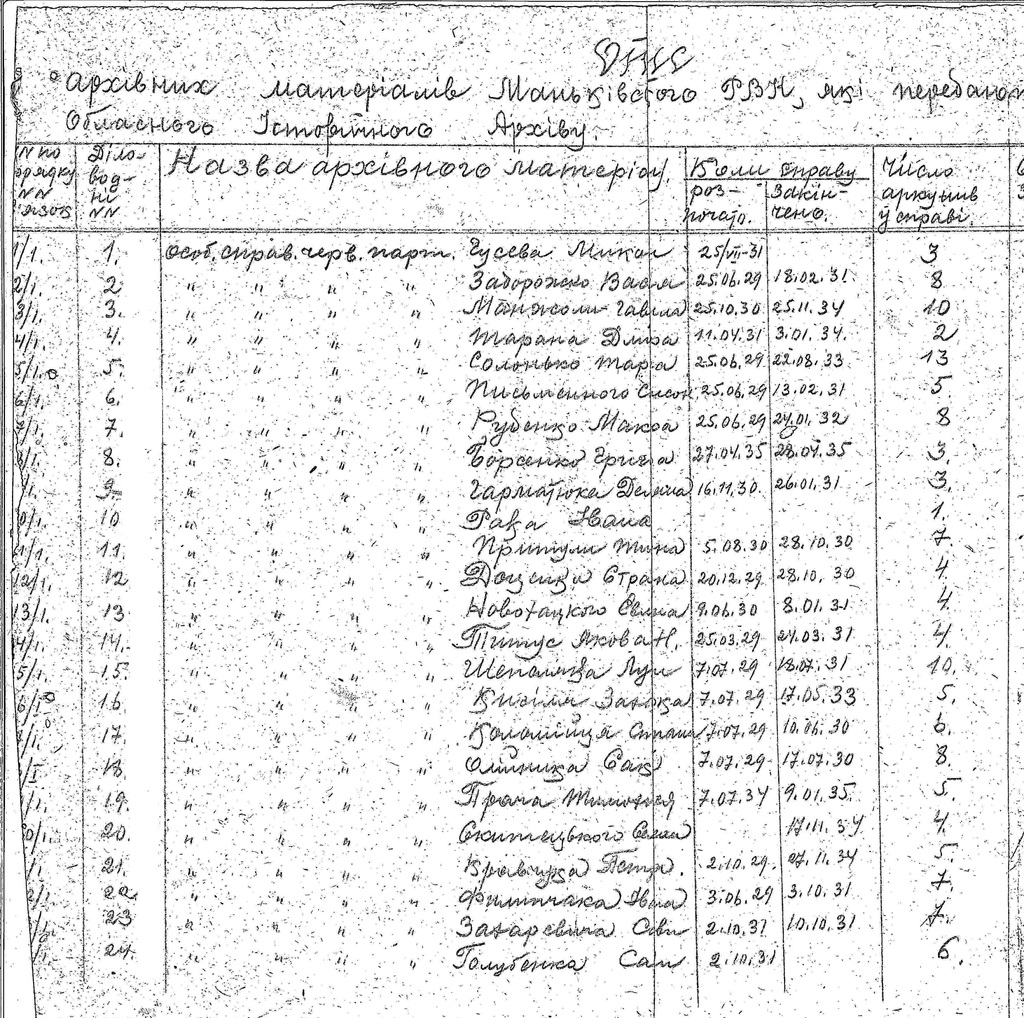 Опис
архівних матеріалів Маньківського РВК, які передано
Обласного Історичного Архіву.
N по порядку NN Діло-вод-ні NN Назва архівного матеріалу. Коли справу роз-почато. Закін-чено. Число аркушів у справі.
1/1. 1. Особ. справ. черв. парт. Гусєва Микол 25/VII-31 3
2/1. 2 " " " " Заборожко Васил 25.06.29 18.02.31. 8
3/1. 3. " " " " Манжоли Гаврила 25.10.30 25.11.34 10
4/1. 4. " " " " Тарана Дмитра 11.04.31 3.01.34. 2
5/1. 5. " " " " Солонько Тара 25.06.29 22.08.33 13
6/1. 6. " " " " Письменного 25.06.29 13.02.31 5.
7/1. 7. " " " " Рубенко Макса 25.06.29 24.01.32 8
8. " " " " Борсенко Григо 27.04.35 28.04.35 3.
9. " " " " Гарматюка 16.11.30. 26.01.31 3.
10 " " " " Рака Івана 1.
11. " " " " Притули 5.08.30 28.10.30 7.
12/1. 12 " " " " Доценка 20.12.29 28.10.30 4.
13/1. 13 " " " " Новохацкого 9.06.30 8.01.31 4.
14. " " " " Титус Якова Н. 25.03.29 24.03.31 4.
15. " " " " Шепеляка Луки 7.07.29 18.07.31 10.
16 " " " " Кисіля Захарка 7.07.29 17.05.33 5.
17. " " " " Коломійця 7.07.29 10.06.30 6.
18. " " " " Олійника Сак 7.07.29 17.07.30 8.
19. " " " " Прача Тимофія 7.07.34 9.01.35. 5.
20. " " " " Скитецького 17.11.34 4.
21. " " " " Кравчука Петр. 2.10.29. 27.11.34 5.
22 " " " " Филипчака Івана 3.06.29 3.10.31 7.
23 " " " " Захаревича Сави 2.10.31 10.10.31 7.
24. " " " " Голубенка Сам 2.10.31 6.